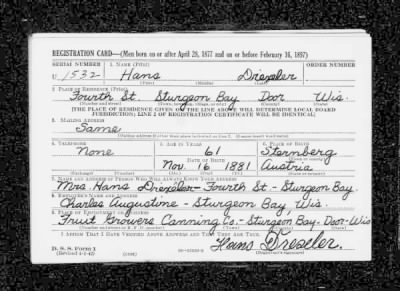 REGISTRATION CARD—(Men born on or after April 28, 1877 and on or before February 16, 1897)
SERIAL NUMBER 1. NAME (Print) ORDER NUMBER
U 1532 Hans Drexler
(First) (Middle) (Last)
2. PLACE OF RESIDENCE (Print)
Fourth St. Sturgeon Bay Door Wis.
(Number and street) (Town, township, village, or city) (County) (State)
[THE PLACE OF RESIDENCE GIVEN ON THE LINE ABOVE WILL DETERMINE LOCAL BOARD
JURISDICTION; LINE 2 OF REGISTRATION CERTIFICATE WILL BE IDENTICAL]
3. MAILING ADDRESS
Same
4. TELEPHONE 5. AGE IN YEARS 6. PLACE OF BIRTH
None 61 Sternberg
DATE OF BIRTH
Nov. 16 1881 Austria
(Exchange) (Number) (Mo.) (Day) (Yr.) (State or country)
7. NAME AND ADDRESS OF PERSON WHO WILL ALWAYS KNOW YOUR ADDRESS
Mrs Hans Drexler - Fourth St. - Sturgeon Bay
8. EMPLOYER'S NAME AND ADDRESS
Charles Augustine - Sturgeon Bay, Wis.
9. PLACE OF EMPLOYMENT OR BUSINESS
Fruit Growers Canning Co. - Sturgeon Bay - Door - Wis
I AFFIRM THAT I HAVE VERIFIED ABOVE ANSWERS AND THAT THEY ARE TRUE.
Hans Drexler.
D. S. S. Form 1
(Revised 4-1-42)